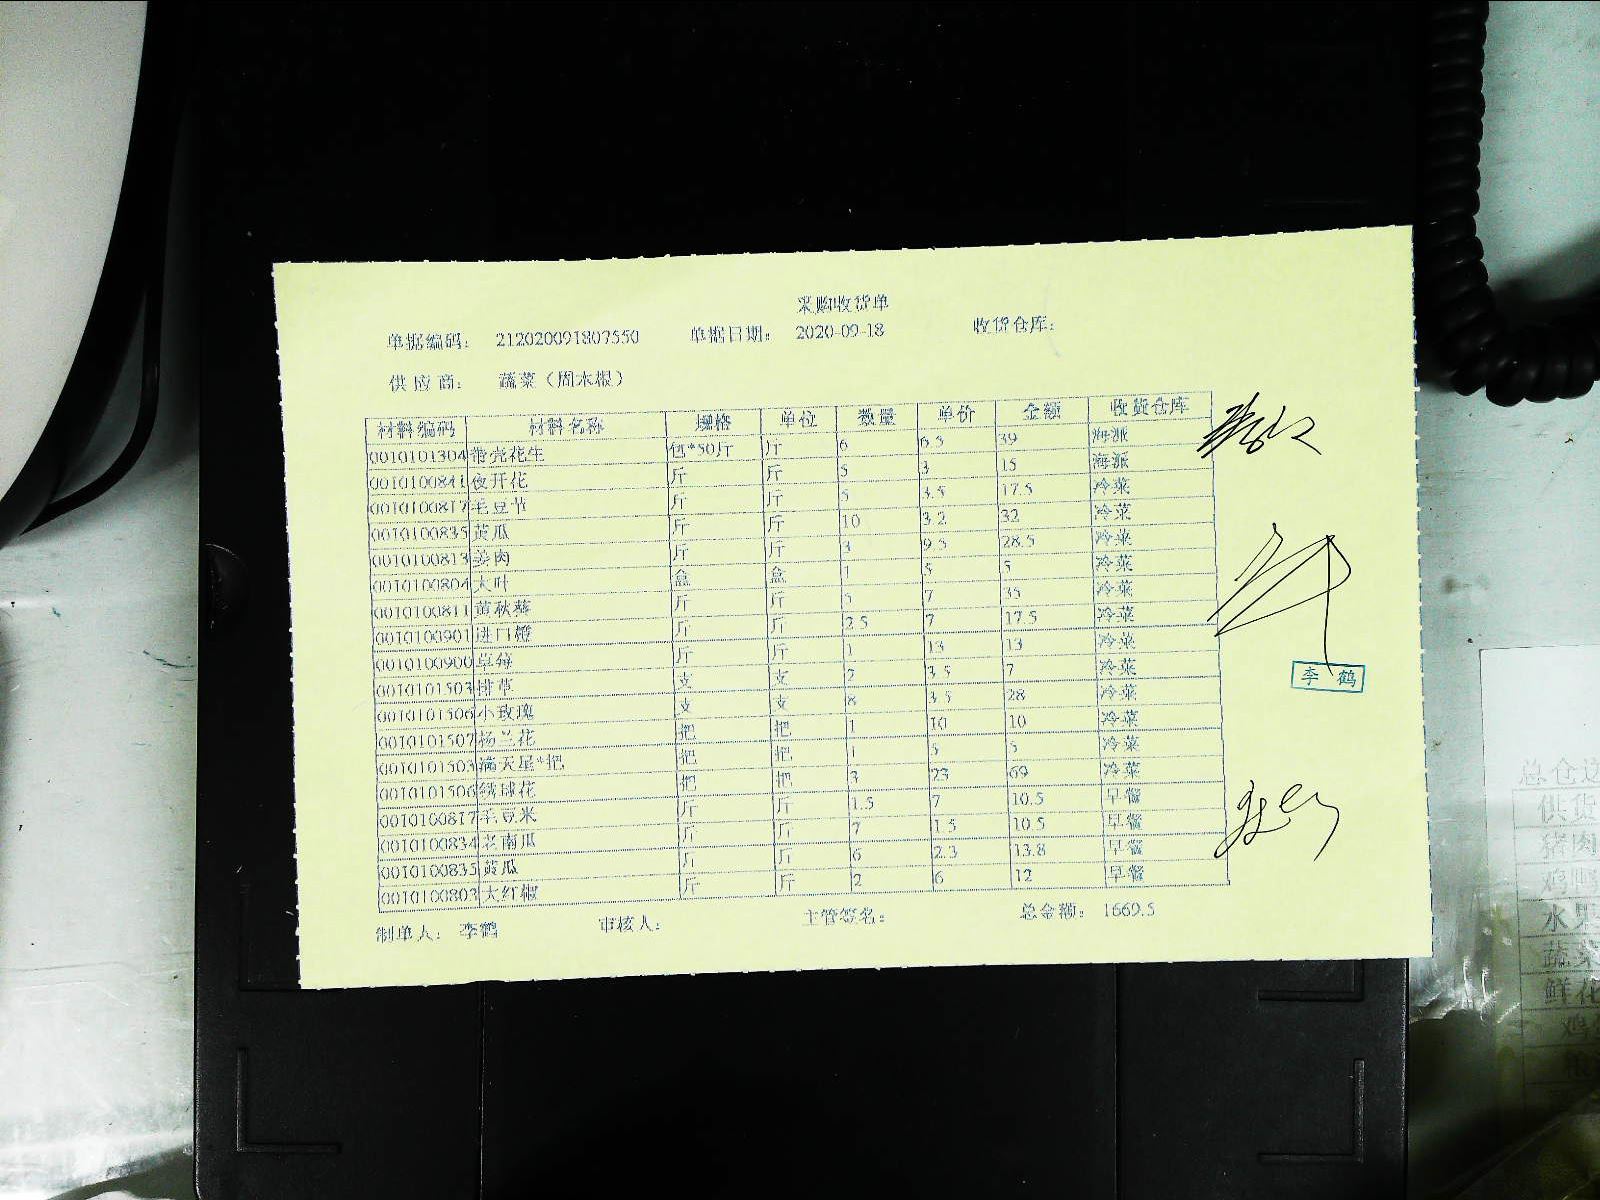 采购收货单
单据编码： 212020091807550 单据日期： 2020-09-18 收货仓库：
供应商： 蔬菜（周末根）
材料编码 材料名称 规格 单位 数量 单价 金额 收货仓库
0010101304 带壳花生 包*50斤 斤 6 6.5 39 海派
0010100841 夜开花 斤 斤 5 3 15 海派
0010100817 毛豆节 斤 斤 5 3.5 17.5 冷菜
0010100835 黄瓜 斤 斤 10 3.2 32 冷菜
0010100813 姜肉 斤 斤 3 9.5 28.5 冷菜
0010100804 大叶 盒 盒 1 5 5 冷菜
0010100811 黄秋葵 斤 斤 5 7 35 冷菜
0010100901 进口橙 斤 斤 2.5 7 17.5 冷菜
0010100900 草莓 斤 斤 1 13 13 冷菜
0010101503 排草 支 支 2 3.5 7 冷菜
0010101506 小玫瑰 支 支 8 3.5 28 冷菜
0010101507 杨兰花 把 把 1 10 10 冷菜
0010101503 满天星*把 把 把 1 5 5 冷菜
0010101506 绣球花 把 把 3 23 69 冷菜
0010100817 毛豆米 斤 斤 1.5 7 10.5 早餐
0010100834 老南瓜 斤 斤 7 1.5 10.5 早餐
0010100835 黄瓜 斤 斤 6 2.3 13.8 早餐
0010100803 大红椒 斤 斤 2 6 12 早餐
制单人： 李鹤 审核人： 主管签名： 总金额： 1669.5
李 鹤
总仓
供货
猪肉
鸡鸭
水果
蔬菜
鲜花